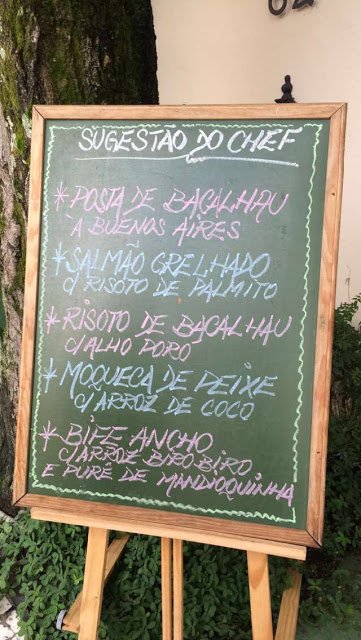 SUGESTÃO DO CHEF
* POSTA DE BAÇALHAU
À BUENOS AIRES
* SALMÃO GRELHADO
C/ RISOTO DE PALMITO
* RISOTO DE BAÇALHAU
C/ ALHO PORO
* MOQUECA DE PEIXE
C/ ARROZ DE COCO
* BIFE ANCHO
C/ ARROZ BIRO BIRO
E PURÊ DE MANDIOQUINHA